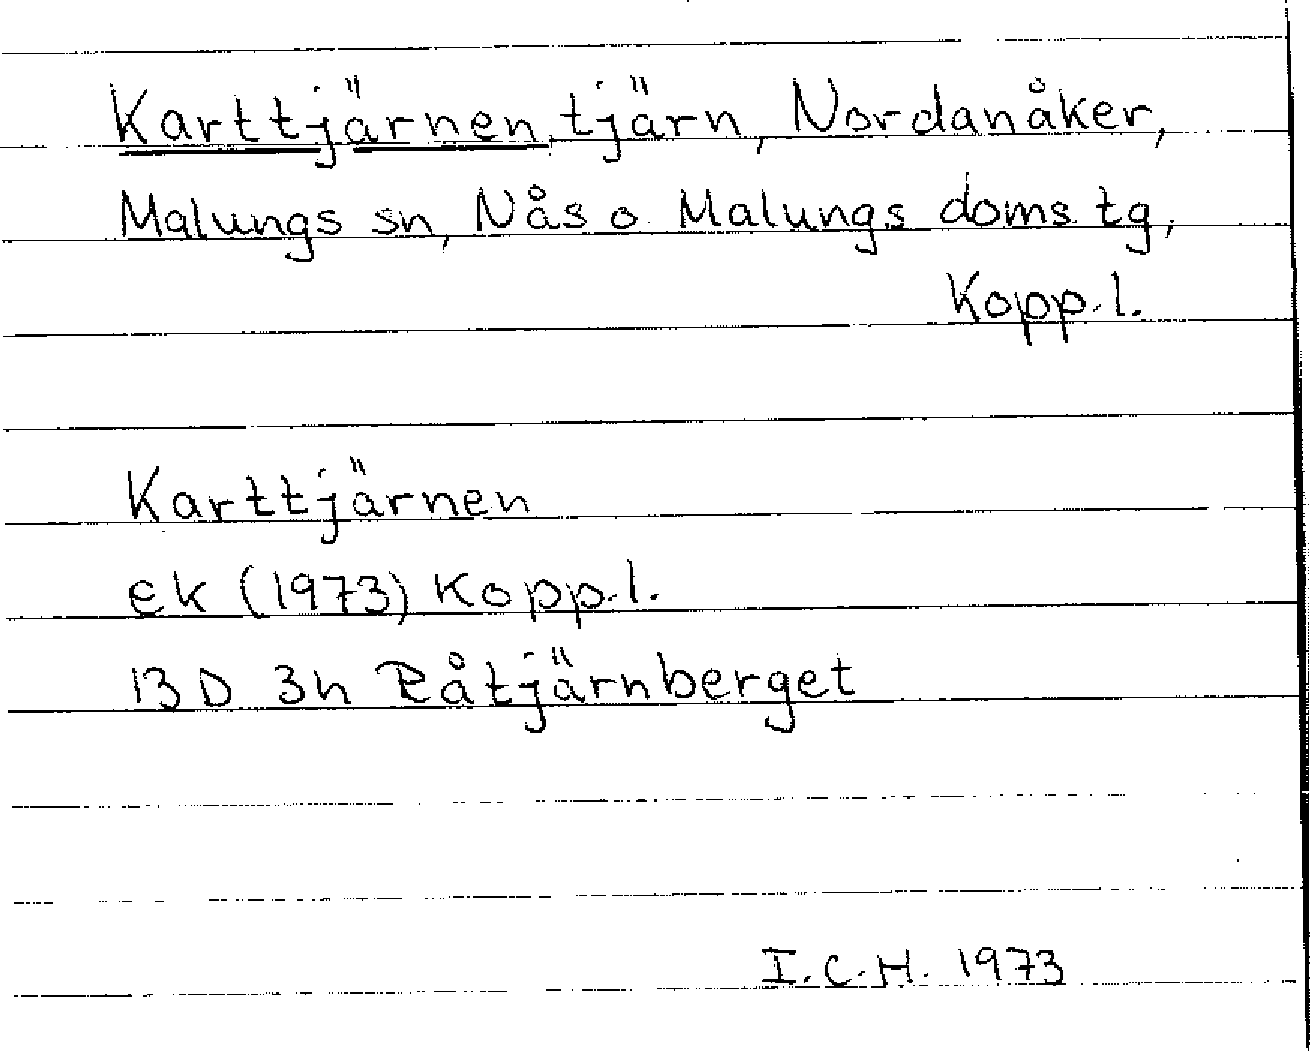 Karttjärnen, tjärn, Nordanåker,
Malungs sn, Nås o Malungs doms.tg,
Kopp.l.
Karttjärnen
ek (1973) Kopp.l.
13D 3h Råtjärnberget
I.C.H. 1973